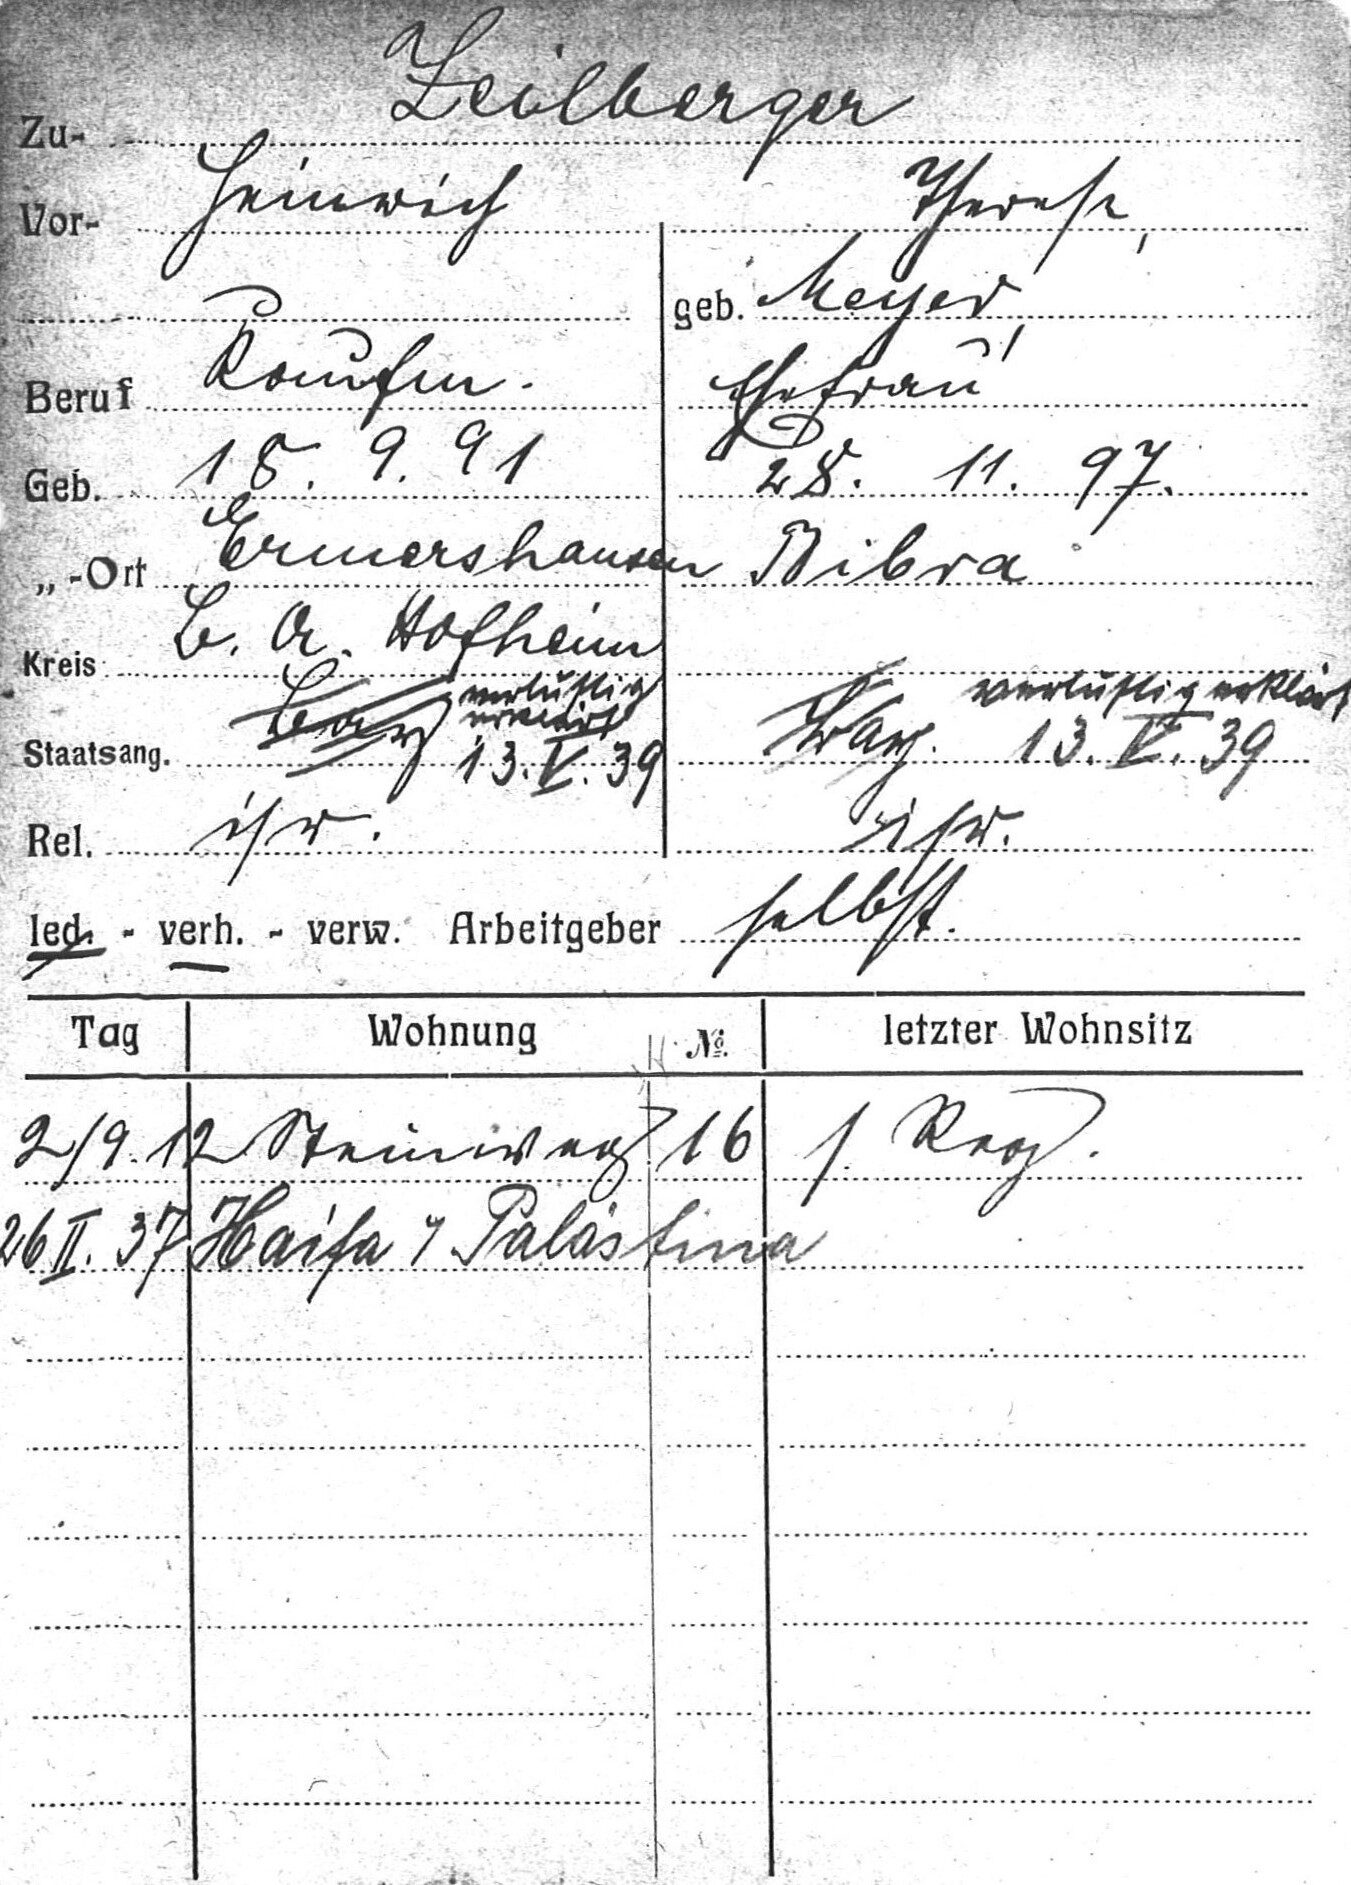 Zu- Zeilberger
Vor- Heinrich Therese,
geb. Meyer,
Beruf Kaufm. Ehefrau
Geb. 18. 9. 91 28. 11. 97.
„ -Ort Ermershausen Bibra
Kreis B. A. Hofheim
Staatsang. Bay verlustig erklärt 13. V. 39 Bay. verlustig erklärt 13. V. 39
Rel. isr. isr.
led. - verh. - verw. Arbeitgeber selbst.
Tag Wohnung No. letzter Wohnsitz
2/9. 12 Steinweg 16 s. Reg.
26 II. 37 Haifa Palästina